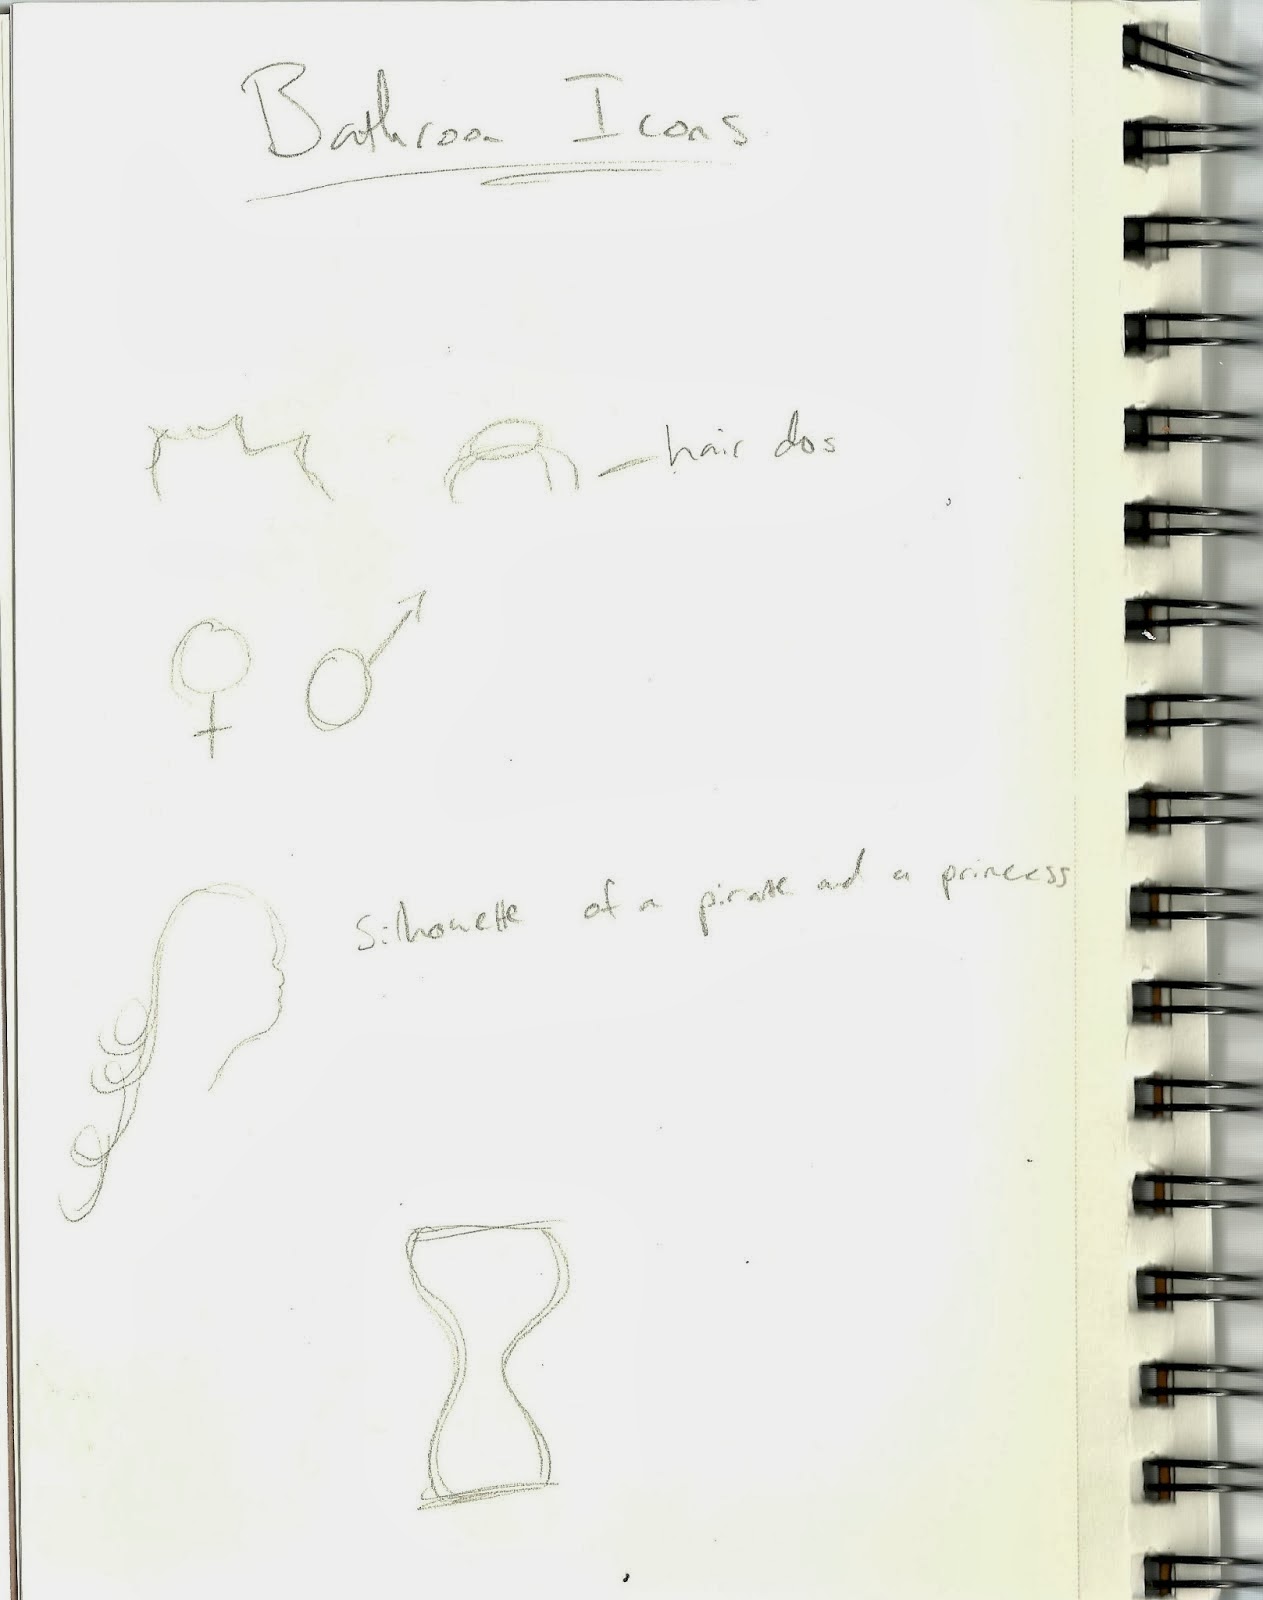 Bathroom Icons
hair dos
Silhouette of a pirate and a princess